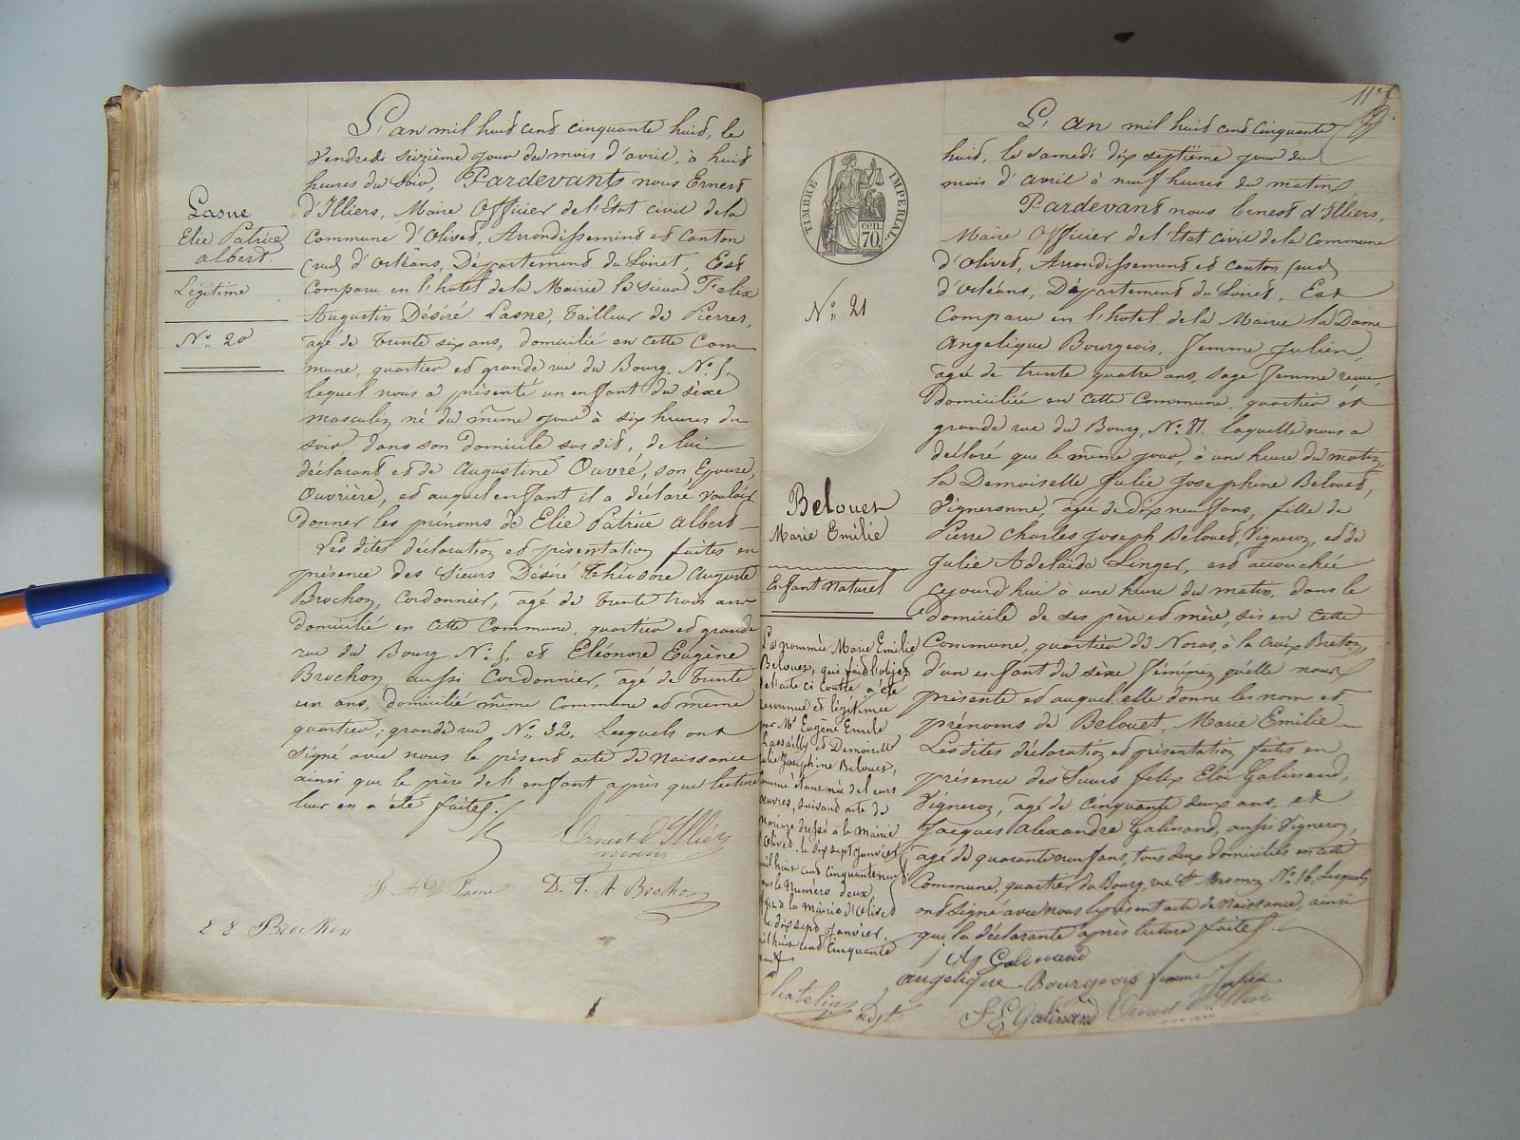 Lasne
Elie Patrice
albert.
Légitime
N° 20
L'an mil huit cent cinquante huit, le
Vendredi seizième jour du mois d'avril, à huit
heures du Soir, Pardevant nous Ernest
d'Illiers, Maire Officier de l'Etat civil de la
Commune d'Olivet, Arrondissement et canton
Sud d'Orléans, Département du Loiret, Est
Comparu en l'hotel de la Mairie le sieur Felix
Augustin Désiré Lasne, Tailleur de Pierres,
agé de trente six ans, domicilié en cette Com
mune, quartier et grande rue du Bourg, N°
lequel nous a présenté un enfant du sèxe
masculin né du même jour à six heures du
soir dans son domicile sus dit, de lui
déclarant et de Augustine Ouvré, son Epouse,
Ouvrière, et auquel enfant il a déclaré vouloir
donner les prénoms de Elie Patrice Albert
Les dites déclaration et présentation faites en
présence des Sieurs Désiré Théodore Auguste
Brochon, Cordonnier, agé de trente trois ans
domicilié en cette Commune, quartier et grande
rue du Bourg N° et Eléonore Eugène
Brochon aussi Cordonnier, agé de trente
un ans, domicilié même Commune et même
quartier, grande rue N° 32, Lesquels ont
signé avec nous le présent acte de Naissance
ainsi que le père de l'enfant après que lecture
leur en a été faite.
Ernest d'Illiers
maire
Lasne D. T. A Brochon
E E Brochon
TIMBRE IMPÉRIAL
70
N° 21
Belouet
Marie Emélie
Enfant Naturel
La nommée Marie Emilie
Belouet, qui fait l'objet
de l'acte ci contre a été
reconnue et légitimée
par Mr Eugène Emile
et Demoiselle
Julie Joséphine Belouet,
comme étant née de leurs
œuvres, suivant acte de
mariage dressé à la Mairie
d'Olivet le dix sept Janvier
mil huit cent cinquante neuf
sous le Numéro deux
la Mairie d'Olivet
le dix sept Janvier
mil huit cent Cinquante
neuf
L'an mil huit cent Cinquante
huit, le samedi dix septième jour du
mois d'avril à neuf heures du matin
Pardevant nous Ernest d'Illiers,
Maire Officier de l'Etat civil de la Commune
d'Olivet, Arrondissement et canton Sud
d'Orléans, Département du Loiret, Est
Comparu en l'hotel de la Mairie la Dame
Angelique Bourgeois, femme Julien,
agée de trente quatre ans, sage femme
domiciliée en cette Commune quartier et
grande rue du Bourg, N° 87 laquelle nous a
déclaré que le même jour, à une heure du matin
la Demoiselle Julie Josephine Belouet,
Vigneronne, agée de dix neuf ans, fille de
Pierre Charles Joseph Belouet, Vigneron, et de
Julie Adelaïde Linger, est accouchée
cejourd'hui à une heure du matin, dans le
domicile de ses père et mère, sis en cette
Commune, quartier de Noras, à la Croix Breton,
d'un enfant du sèxe féminin qu'elle nous
présente et auquel elle donne les nom et
prénoms de Belouet, Marie Emilie
Les dites déclaration et présentation faites en
présence des Sieurs felix Eloi Galinand,
Vigneron, agé de Cinquante deux ans, et
Jacques Alexandre Galinand, aussi Vigneron,
agé de quarante neuf ans, tous deux domiciliés en cette
Commune, quartier du Bourg, rue N° 16, Lesquels
ont signé avec nous le présent acte de Naissance, ainsi
que la déclarante après lecture faite.
Galinand
angelique Bourgeois femme Julien
F E Galinand Ernest d'Illiers